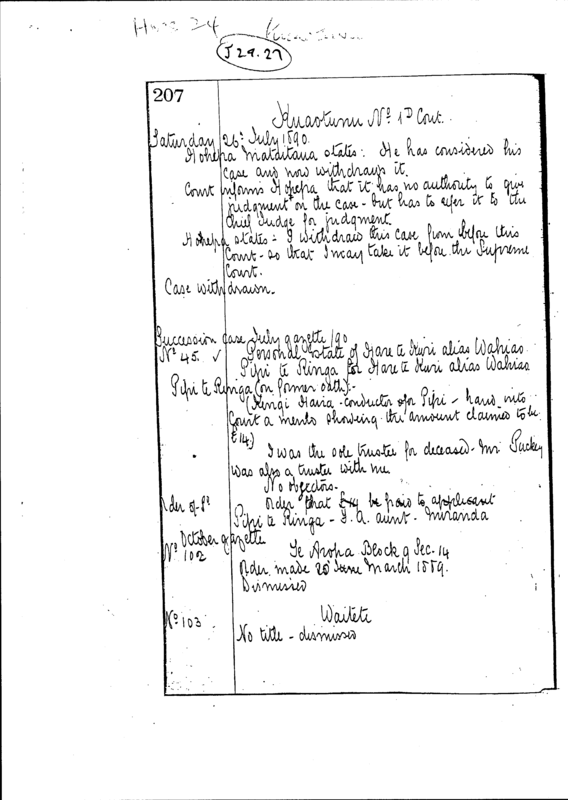 J 29.27
207
Kuaotunu No 1D Cont.
Saturday 26th July 1890.
Hohepa Mataitaua states: He has considered his
case and now withdraws it.
Court informs Hohepa that it has no authority to give
judgment on the case - but has to refer it to the
Chief Judge for judgment
Hohepa states: I withdraw this case from before this
Court - so that I may take it before the Supreme
Court.
Case withdrawn.
Succession case July gazette /90
No 45. ✓ Personal Estate of Hare te Kuri alias Wahiao
Pipi te Ringa for Hare te Kuri alias Wahiao
Pipi te Ringa (on former oath):-
(Kingi Haria - conductor for Pipi - hands into
Court a memo showing the amount claimed to be
£14)
I was the sole trustee for deceased - Mr Puckey
was also a trustee with me.
No objectors.
Order of Ct Order that £14 be paid to applicant
Pipi te Ringa - F. A. aunt. Miranda
October gazette
No 102 Te Aroha Block 9 Sec. 14
Order made 20 June March 1889.
Dismissed
Waitete
No 103. No title - dismissed